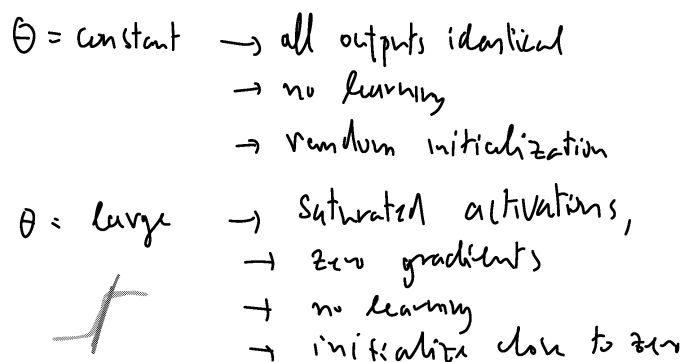 θ = constant → all outputs identical
→ no learning
→ random initialization
θ = large → saturated activations,
→ zero gradients
→ no learning
→ initialize close to zero